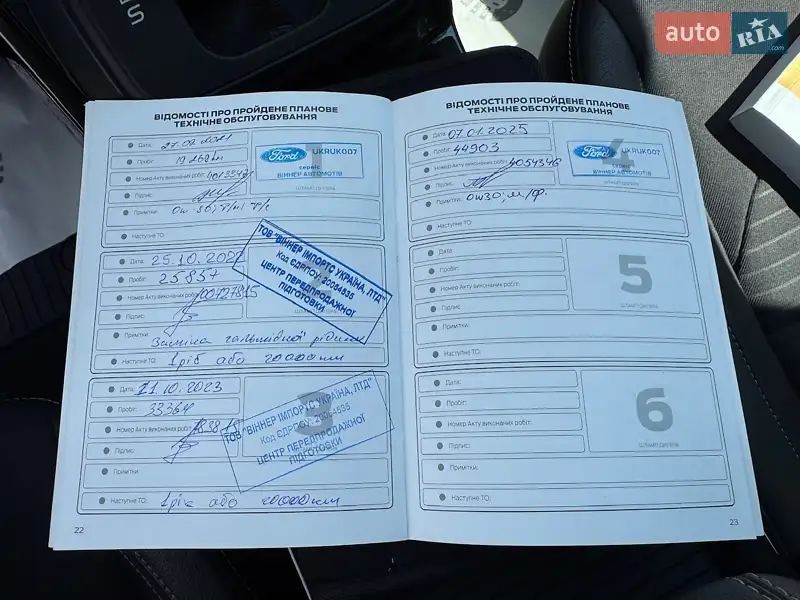 auto RIA.com
ВІДОМОСТІ ПРО ПРОЙДЕНЕ ПЛАНОВЕ
ТЕХНІЧНЕ ОБСЛУГОВУВАННЯ
Дата:
Пробіг:
Номер Акту виконаних робіт:
Підпис:
Примітки:
Наступне ТО:
1
Ford
UKRUK007
сервіс
ВІННЕР АВТОМОТІВ
ШТАМП ДИЛЕРА
Дата: 25.10.2022
Пробіг: 25837
Номер Акту виконаних робіт:
Підпис:
Примітки: Заміна гальмівної рідини
Наступне ТО: 1 рік або 20000 км
ТОВ "ВІННЕР ІМПОРТС УКРАЇНА, ЛТД"
Код ЄДРПОУ: 20064535
ЦЕНТР ПЕРЕДПРОДАЖНОЇ
ПІДГОТОВКИ
Дата: 21.10.2023
Пробіг: 33364
Номер Акту виконаних робіт:
Підпис:
Примітки:
Наступне ТО: 1 рік або 20000 км
3
ТОВ "ВІННЕР ІМПОРТС УКРАЇНА, ЛТД"
Код ЄДРПОУ: 20064535
ЦЕНТР ПЕРЕДПРОДАЖНОЇ
ПІДГОТОВКИ
22
ВІДОМОСТІ ПРО ПРОЙДЕНЕ ПЛАНОВЕ
ТЕХНІЧНЕ ОБСЛУГОВУВАННЯ
Дата: 07.01.2025
Пробіг: 44903
Номер Акту виконаних робіт: 4054346
Підпис:
Примітки: 0w30; м/ф.
Наступне ТО:
4
Ford
UKRUK007
сервіс
ВІННЕР АВТОМОТІВ
ШТАМП ДИЛЕРА
Дата:
Пробіг:
Номер Акту виконаних робіт:
Підпис:
Примітки:
Наступне ТО:
5
ШТАМП ДИЛЕРА
Дата:
Пробіг:
Номер Акту виконаних робіт:
Підпис:
Примітки:
Наступне ТО:
6
ШТАМП ДИЛЕРА
23